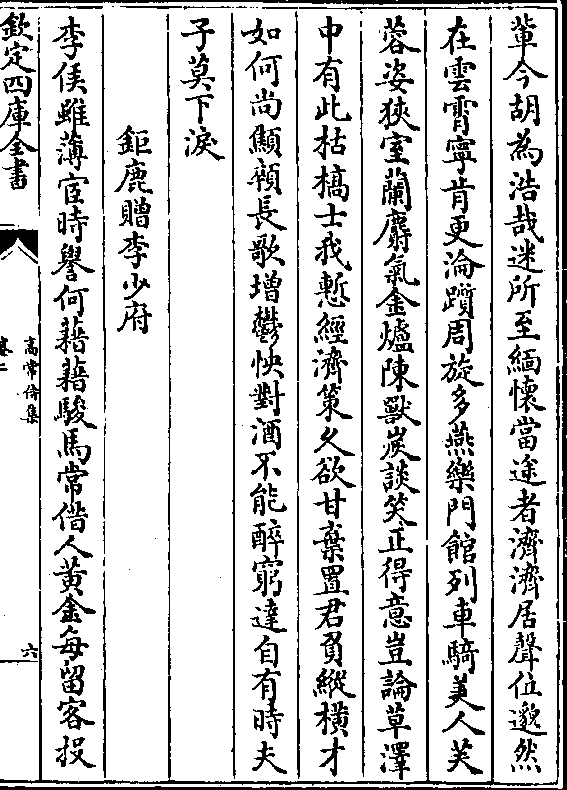 輩今胡為浩哉迷所至緬懷當途者濟濟居聲位邈然
在雲霄寧肯更淪躓周旋多燕樂門館列車騎美人芙
蓉姿狹室蘭麝氣金爐陳獸炭談笑正得意豈論草澤
中有此枯槁士我慙經濟策久欲甘棄置君負縱横才
如何尚顦顇長歌增鬱怏對酒不能醉窮達自有時夫
子莫下淚
鉅鹿贈李少府
李侯雖薄宦時譽何藉藉駿馬常借人黄金每留客投
欽定四庫全書
高常侍集
卷二
六